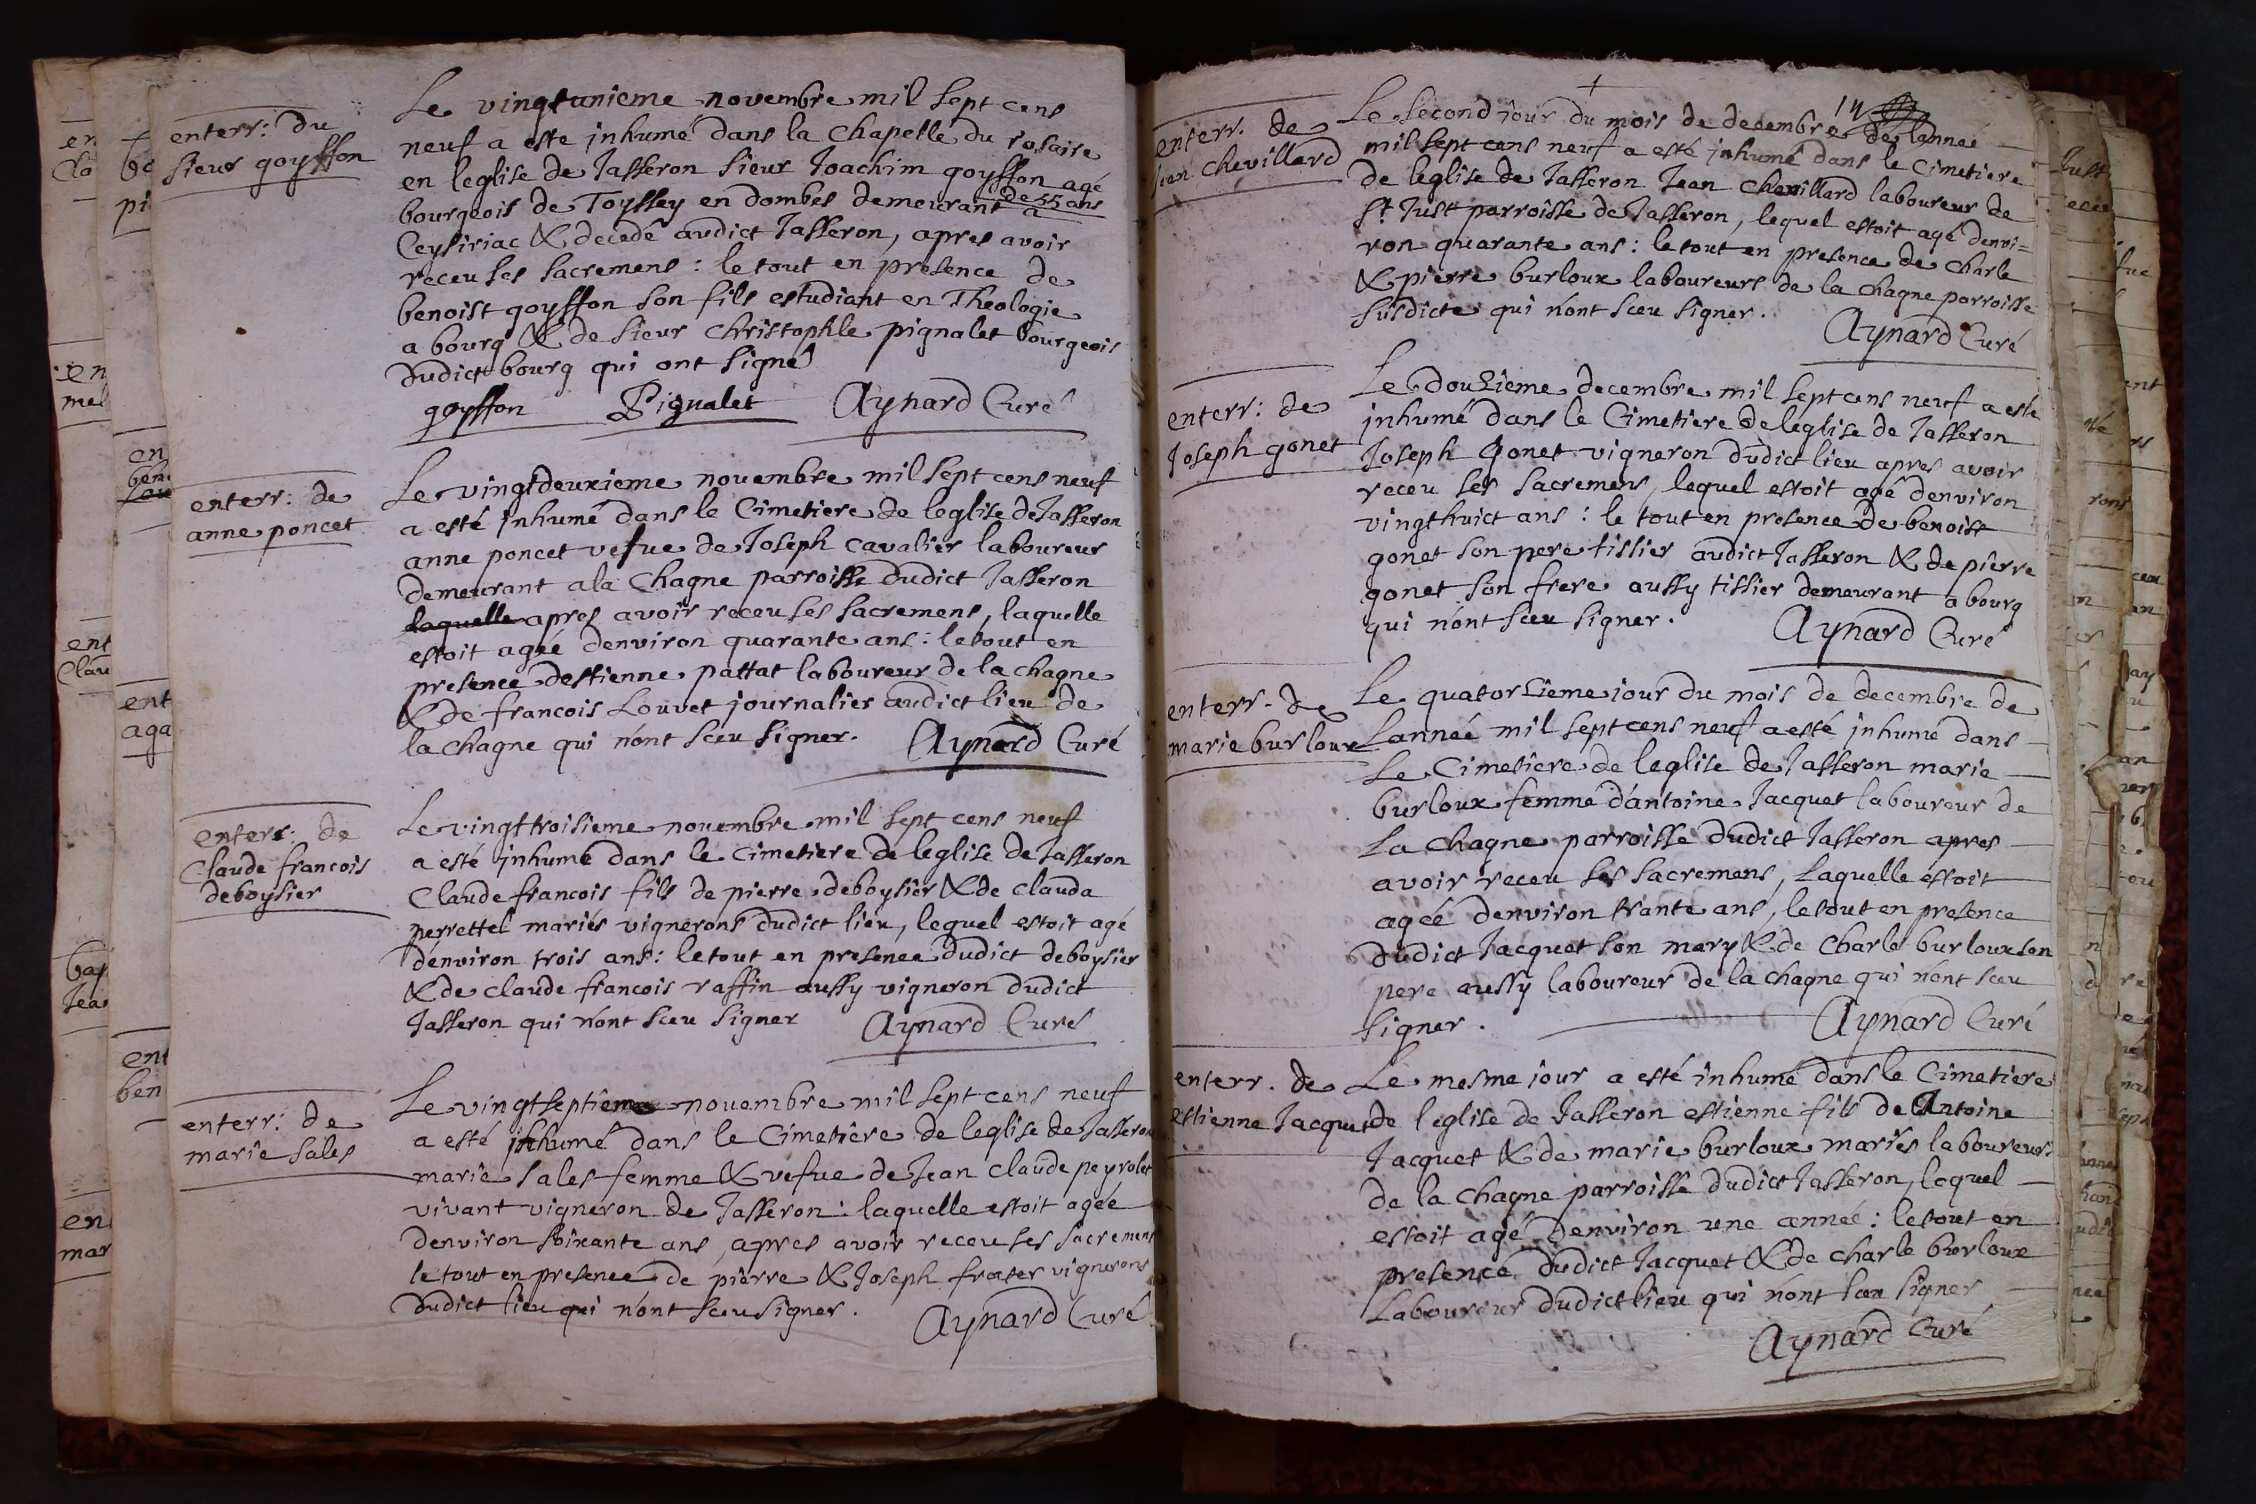 enterr: du
sieur goyffon
Le vingtunieme novembre mil sept cens
neuf a este inhumé dans la Chapelle du rosaire
en leglise de Jasseron sieur Joachim goyffon agé
de 55 ans
bourgeois de Toyssey en dombes demeurant a
Ceysiriac & decedé audict Jasseron, apres avoir
receu ses sacremens : le tout en presence de
benoist goyffon son fils estudiant en Theologie
a bourg & de sieur Christophle pignalet bourgeois
dudict bourg qui ont signé
goyffon Pignalet Aynard Curé
enterr: de
anne poncet
Le vingtdeuxieme novembre mil sept cens neuf
a esté inhumé dans le Cimetiere de leglise de Jasseron
anne poncet vefue de Joseph cavalier laboureur
demeurant a la Chagne parroisse dudict Jasseron
laquelle apres avoir receu ses sacremens, laquelle
estoit agéé denviron quarante ans : le tout en
presence destienne pattat laboureur de la chagne
& de francois Louvet journalier audict lieu de
la chagne qui n'ont sceu signer. Aynard Curé
enterr: de
Claude francois
deboysier
Le vingttroisieme novembre mil sept cens neuf
a esté inhumé dans le cimetiere de leglise de Jasseron
Claude francois fils de pierre deboysier & de clauda
perrettel mariés vignerons dudict lieu, lequel estoit agé
d'environ trois ans : le tout en presence dudict deboysier
& de claude francois raffin aussy vigneron dudict
Jasseron qui n'ont sceu signer Aynard Curé
enterr: de
marie sales
Le vingtseptieme novembre mil sept cens neuf
a esté inhumé dans le Cimetiere de leglise de Jasseron
marie sales femme & vefue de Jean Claude peyrolet
vivant vigneron de Jasseron : laquelle estoit agéé
denviron soixante ans, apres avoir receu ses sacremens
le tout en presence de pierre & Joseph frater vignerons
dudict lieu qui n'ont sceu signer. Aynard Curé
14
enterr. de
Jean Chevillard
Le second jour du mois de decembre de lanneé
mil sept cens neuf a esté inhumé dans le Cimetiere
de leglise de Jasseron Jean Chevillard laboureur de
St. Just parroisse de Jasseron, lequel estoit agé denvi=
ron quarante ans : le tout en presence de Charle
& pierre burloux laboureurs de la chagne parroisse
susdicte qui n'ont sceu signer.
Aynard Curé
enterr: de
Joseph gonet
Le douzieme decembre mil sept cens neuf a esté
inhumé dans le Cimetiere de leglise de Jasseron
Joseph gonet vigneron dudict lieu apres avoir
receu ses sacremens, lequel estoit agé denviron
vingthuict ans : le tout en presence de benoist
gonet son pere tissier audict Jasseron & de pierre
gonet son frere aussy tissier demeurant a bourg
qui n'ont sceu signer.
Aynard Curé
enterr. de
marie burloux
Le quatorzieme jour du mois de decembre de
Lanneé mil sept cens neuf a esté inhumé dans
Le Cimetiere de leglise de Jasseron marie
burloux femme d'antoine Jacquet laboureur de
La chagne parroisse dudict Jasseron apres
avoir receu ses sacremens, Laquelle estoit
agéé denviron trante ans, le tout en presence
dudict Jacquet son mary & de charle burloux son
pere aussy laboureur de la chagne qui n'ont sceu
signer. Aynard Curé
enterr. de
estienne Jacquet
Le mesme jour a esté inhumé dans le Cimetiere
de leglise de Jasseron estienne fils de Antoine
Jacquet & de marie burloux mariés laboureurs
de la chagne parroisse dudict Jasseron, lequel
estoit agé denviron une anneé : le tout en
presence dudict Jacquet & de charle burloux
Laboureur dudict lieu qui n'ont sceu signer
Aynard Curé